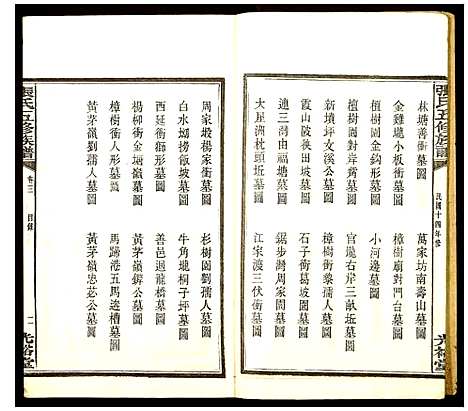 張氏五修族譜
民國十四年修
光裕堂
林塘善衝墓圖
萬家坊南壽山墓圖
金雞壠小板衝墓圖
樟樹廟對門台墓圖
檀樹園金鈎形墓圖
小河邊墓圖
檀樹園對岸窩墓圖
官壠右岸三畝坵墓圖
新墳坪文溪公墓圖
樟樹衝黎孺人墓圖
霞山陂狹田坵墓圖
石子衝葛坡墓圖
連三灣福塘墓圖
鋸步灣周家閣墓圖
大星湖枕頭坵墓圖
江家渡三伏衝墓圖
周家塅楊家衝墓圖
杉樹園劉孺人墓圖
白水塅撈飯坡墓圖
牛角壠桐子坪墓圖
西延衝斯公墓圖
善邑迴龍橋墓圖
楊柳衝金塘嶺墓圖
黃茅嶺鏘公墓圖
樟樹衝人形墓圖
馬蹄港五馬逩槽墓圖
黃茅嶺劉孺人墓圖
黃茅嶺忠苾公墓圖
張氏五修族譜
卷三
目錄
二
光裕堂